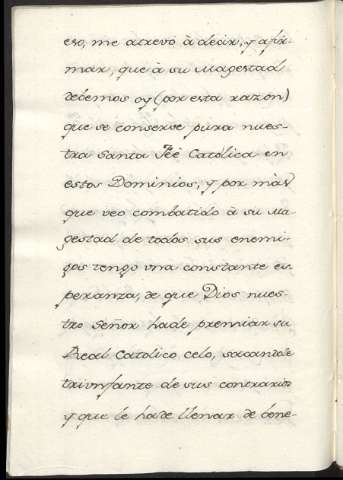 eso, me atrevo à decir, y afir-
mar, que à su Magestad
debemos oy (por esta razon)
que se conserve pura nues-
tra Santa Feè Catòlica en
estos Dominios, y por màs
que veo combatido à su Ma-
gestad de todos sus enemi-
gos tengo una constante es-
peranza, de que Dios nues-
tro Señor hade premiar su
Real Catolico celo, sacandole
triunfante de sus contrarios
y que le hade llenar de bene-